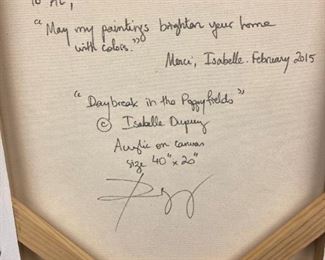 To AL,
"May my paintings brighten your home
with colors."
Merci, Isabelle. February 2015
"Daybreak in the Poppyfields"
© Isabelle Dupuy
Acrylic on canvas
size 40"x20"